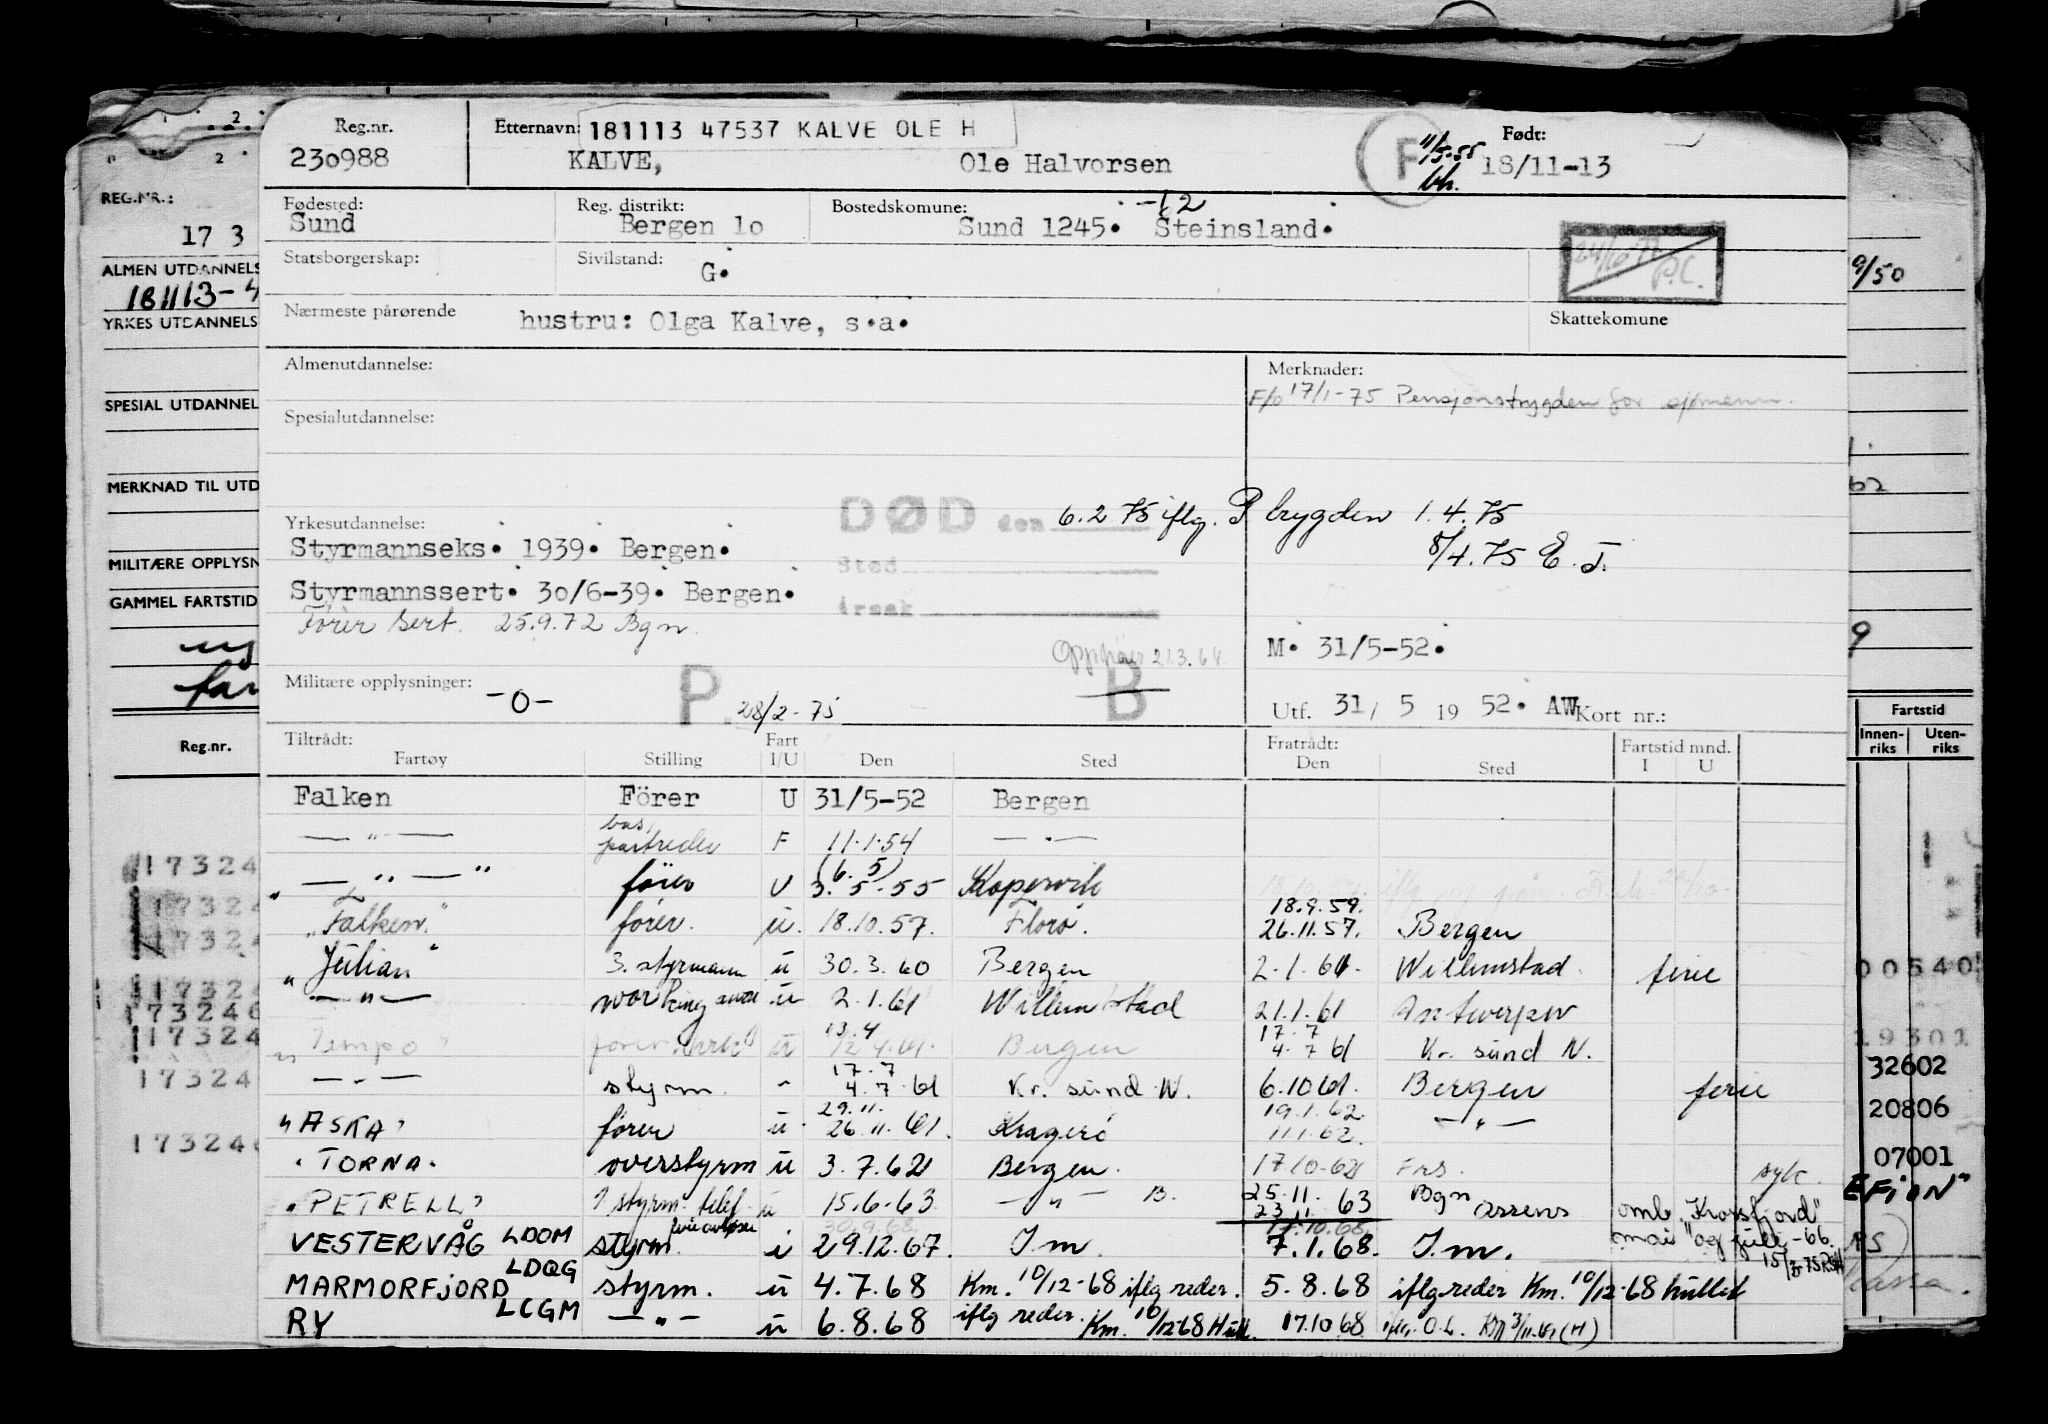 Reg.nr. Etternavn: 181113 47537 KALVE OLE H Født:
230988 KALVE, Ole Halvorsen F 11/5-55 bh. 18/11-13
Fødested: Reg. distrikt: Bostedskomune: -62
Sund Bergen 1o Sund 1245. Steinsland.
Statsborgerskap: Sivilstand: G. P.C.
Nærmeste pårørende hustru: Olga Kalve, s.a. Skattekomune
Almenutdannelse: Merknader:
F/o 17/1-75 Pensjonstrygden for sjømenn.
Spesialutdannelse:
DØD den 6.2 75 iflg. P trygden 1.4.75
Yrkesutdannelse:
Styrmannseks. 1939. Bergen. Sted 8/4.75 E.J.
Styrmannssert. 30/6-39. Bergen. årsak
Fører Sert. 25.9.72 Bgn.
Opphør 21.3.64 M. 31/5-52.
Militære opplysninger: -0- P. 28/2-75 B Utf. 31/ 5 19 52. AW Kort nr.:
Tiltrådt: Fart Fratrådt: Fartstid mnd.
Fartøy Stilling I/U Den Sted Den Sted I U
Falken Förer U 31/5-52 Bergen
— " — bas, partreder F 11.1.54 — " —
" — " — " fører U 3.5.55 (6. 5) Kopervik
"Falken." fører. u. 18.10.57. Florø. 18.9.59. 26.11.57. Bergen
"Julian" 3. styrmann u 30.3.60 Bergen 2.1.61. Willemstad. ferie
— " — working u 2.1.61 Willemstad 21.1.61 Antwerpen
"Tempo" fører u 13.4 12.4.61. Bergen 17.7 4.7 61 Kr. sund N.
— " — styrm. " 17.7 4.7.61 Kr. sund N. 6.10.61. Bergen ferie
"ASKA" fører u. 29.11. 26.11.61. Kragerø 19.1.62. 11.1.62. — " —
"TORNA" overstyrm u 3.7.62 Bergen. 17.10-62 Frs. syk.
"PETRELL" 1 styrm. telef u 15.6-63 — " — B. 25.11. 23.11 63 Bgn Assens omb "Krossfjord"
VESTERVÅG LDOM styrm. ferieavløser i 30.9.68 29.12.67. J.m. 17.10.68. 7.1.68. J.m. mai og juli -66.
MARMORFJORD LDQG styrm. u 4.7.68 Km. 10/12-68 iflg reder. 5.8.68 iflg reder Km. 10/12-68 hullet
RY LCGM — " — u 6.8.68 iflg reder. Km. 10/12-68 17.10 68
REG.NR.:
17 3
ALMEN UTDANNELS
181113-4
YRKES UTDANNELS
SPESIAL UTDANNEL
MERKNAD TIL UTD
MILITÆRE OPPLYSN
GAMMEL FARTSTID
Reg.nr.
17324
17324
17324
17324
173246
17324
17324
173246
9/50
Fartstid
Innen-riks Uten-riks
00540
19301
32602
20806
07001